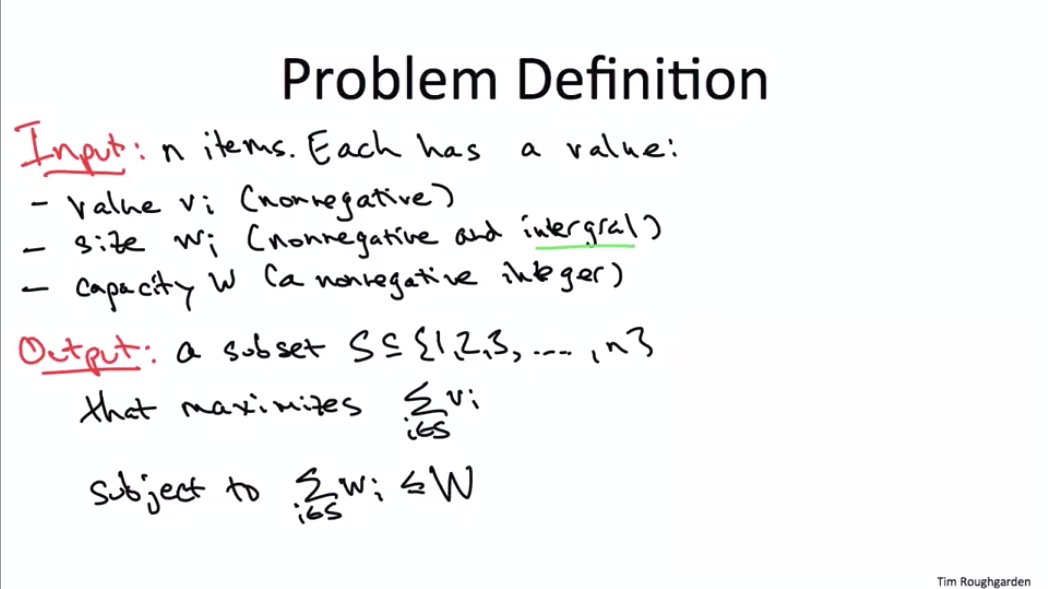 Problem Definition
Input: n items. Each has a value:
- value vi (nonnegative)
- size wi (nonnegative and intergral)
- capacity W (a nonnegative integer)
Output: a subset S ⊆ {1,2,3, ...., n}
that maximizes ∑ vi
i∈S
subject to ∑ wi ≤ W
i∈S
Tim Roughgarden